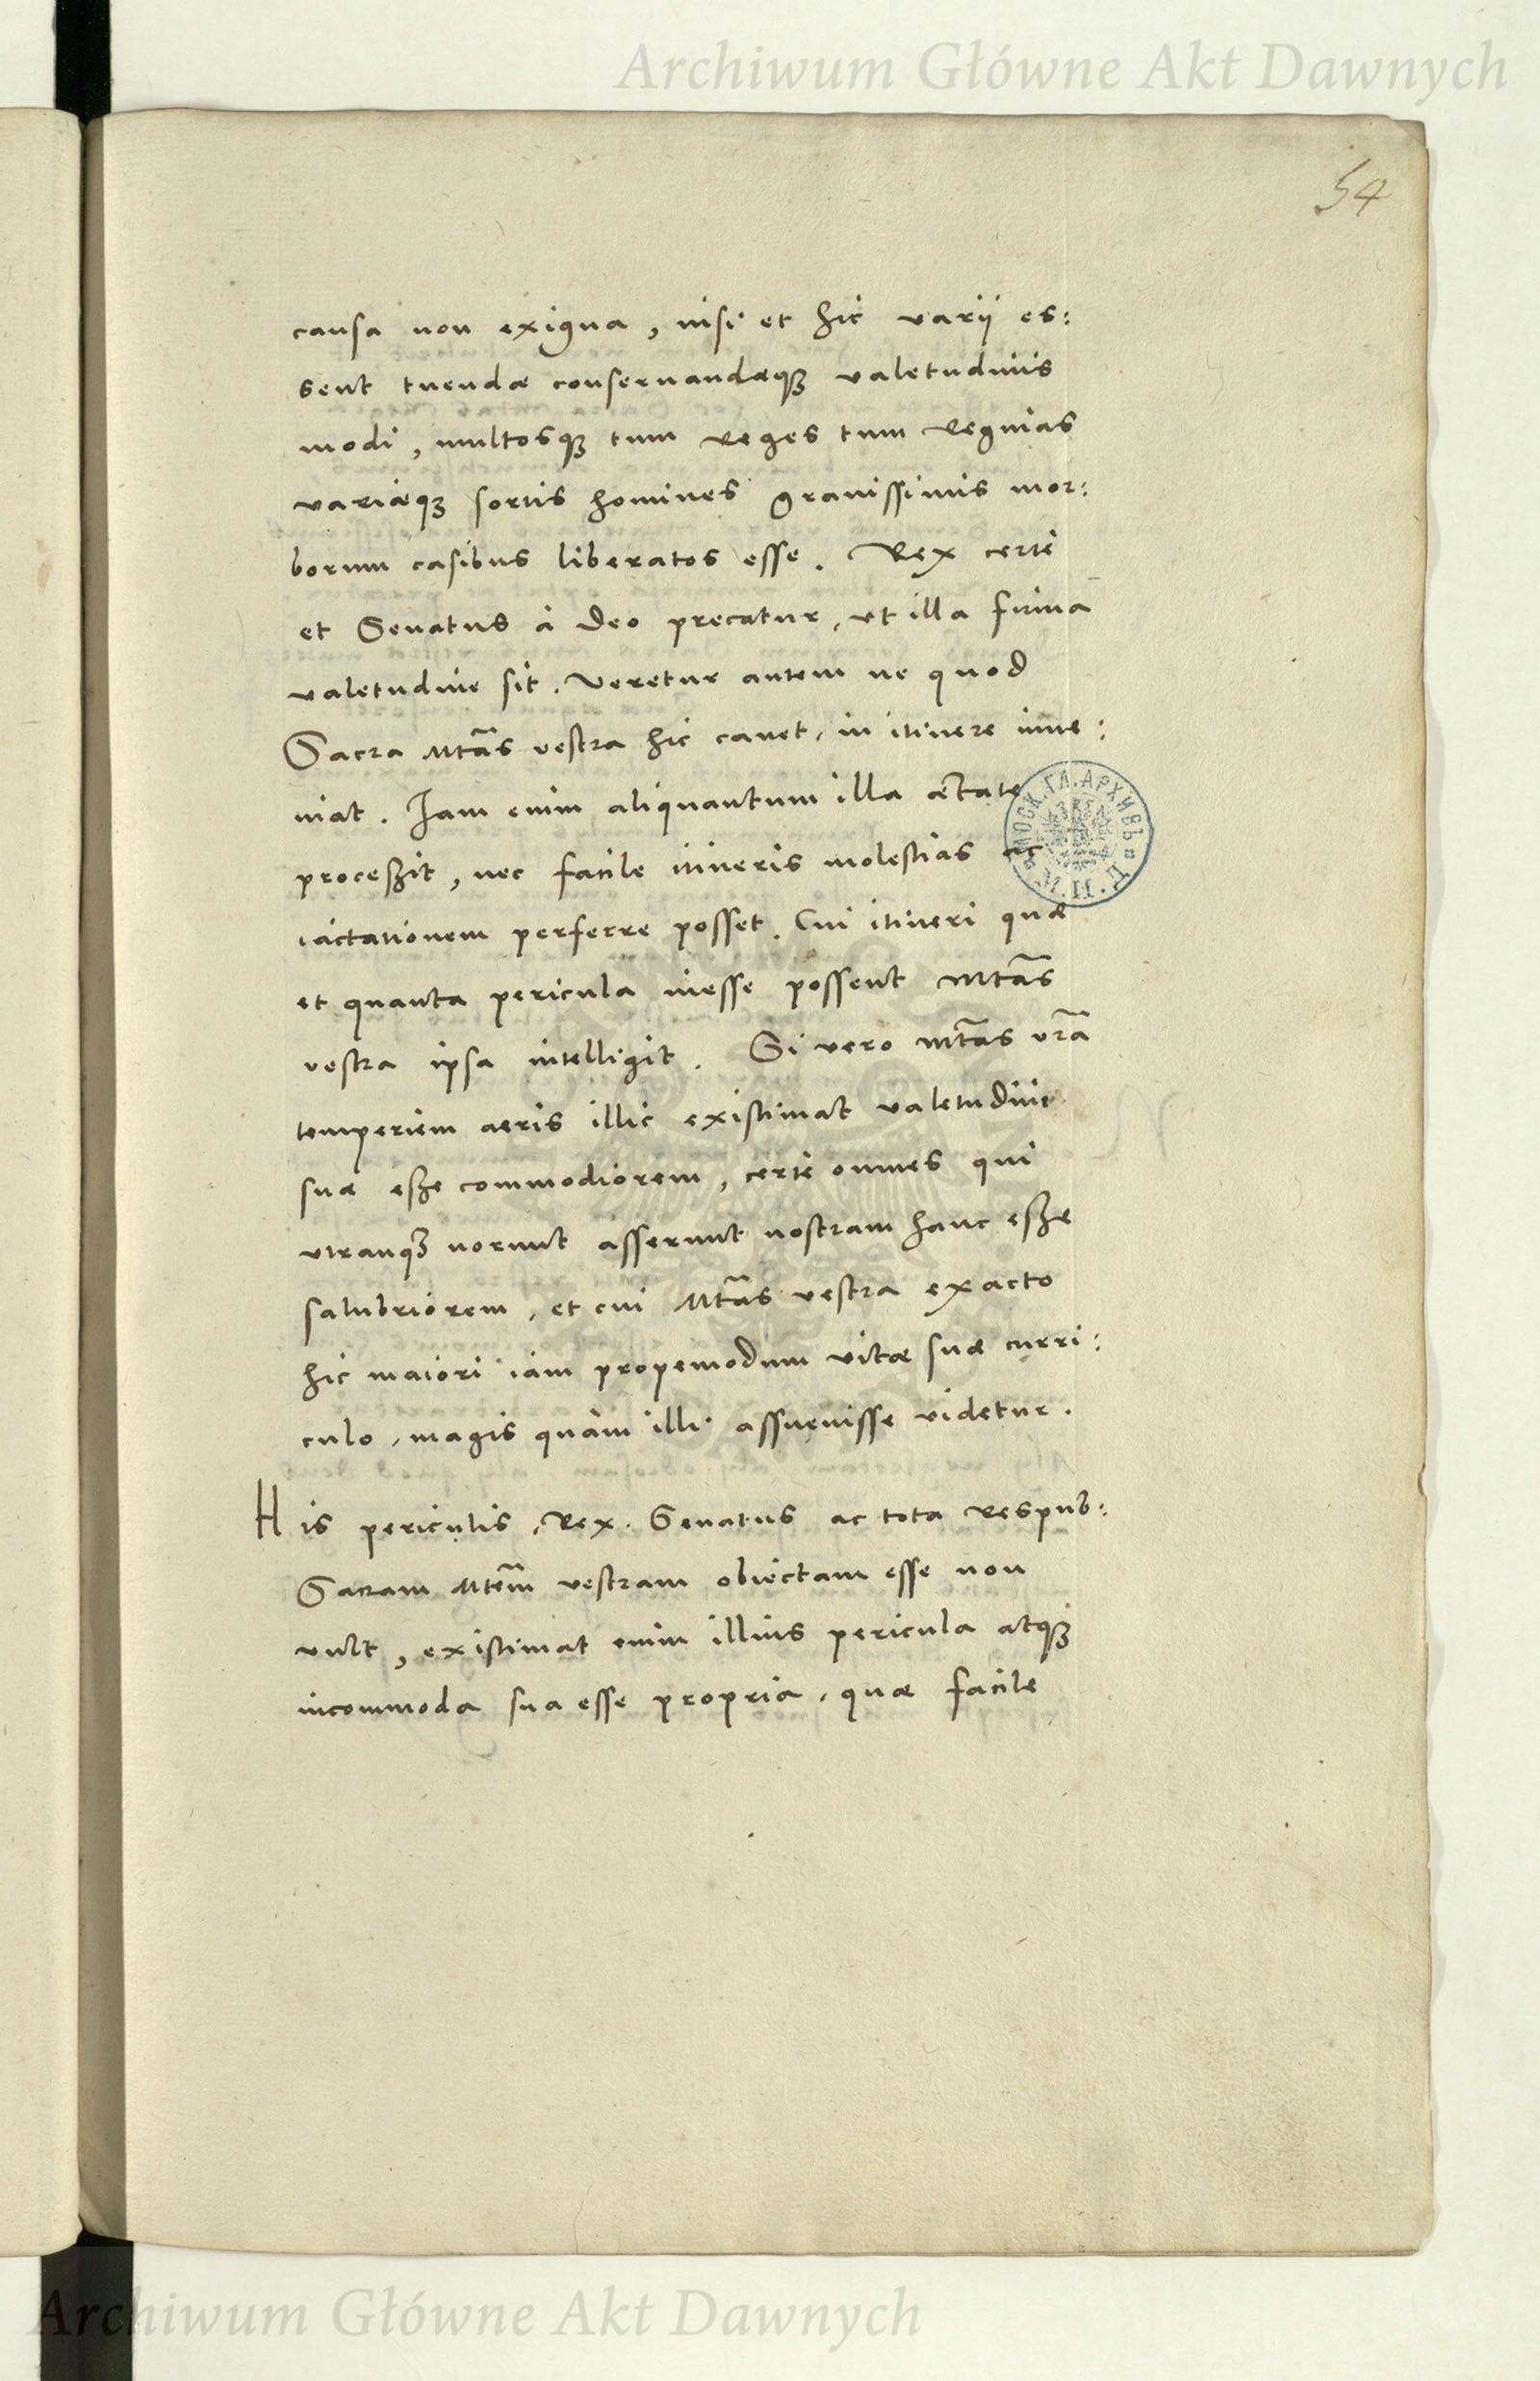 Archiwum Główne Akt Dawnych
54
causa non exigua, nisi et hic varij es:
sent tuendæ conseruandæqȝ valetudinis
modi, multosqȝ tum Reges tum Reginas
variæqȝ sortis homines grauissimis mor:
borum casibus liberatos esse. Rex certè
et Senatus à Deo precatur, ut illa firma
valetudine sit. Veretur autem ne quod
Sacra Mtãs vestra hic cauet, in itinere inue:
niat. Iam enim aliquantum illa ætate
proceßit, nec facile itineris molestias ac
iactationem perferre posset. Cui itineri quæ
et quanta pericula inesse possent Mtãs
vestra ipsa intelligit. Si vero Mtãs vrã
temperiem aeris illic existimat valetudini
suæ eße commodiorem, certè omnes qui
utranqȝ norunt asserunt nostram hanc eße
salubriorem, et cui Mtãs vestra exacto
hic maiori iam propemodum vitæ suæ curri:
culo, magis quàm illi assueuisse videtur.
His periculis, Rex. Senatus ac tota Respub:
Sacram Mtem̃ vestram obiectam esse non
vult, existimat enim illius pericula atqȝ
incommoda sua esse propria, quæ facile
МОСК. ГЛ. АРХИВЪ
М. И. Д.
Archiwum Główne Akt Dawnych